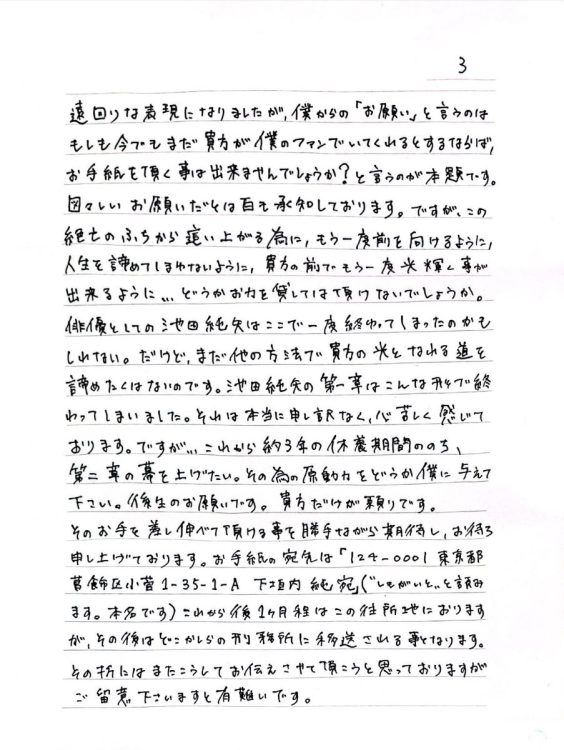 3
遠回りな表現になりましたが、僕からの「お願い」と言うのは
もしも今でもまだ貴方が僕のファンでいてくれるとするならば、
お手紙を頂く事は出来ませんでしょうか?と言うのが本題です。
図々しいお願いだとは百も承知しております。ですが、この
絶亡のふちから這い上がる為に、もう一度前を向けるように、
人生を諦めてしまわないように、貴方の前でもう一度光輝く事が
出来るように...どうかお力を貸しては頂けないでしょうか。
俳優としての池田純矢はここで一度終わってしまったのかも
しれない。だけど、まだ他の方法で貴方の光となれる道を
諦めたくはないのです。池田純矢の第一章はこんな形で終
わってしまいました。それは本当に申し訳なく、心苦しく感じて
おります。ですが...これから約3年の休養期間ののち、
第二章の幕を上げたい。その為の原動力をどうか僕に与えて
下さい。後生のお願いです。貴方だけが頼りです。
そのお手を差し伸べて頂ける事を勝手ながら期待し、お待ち
申し上げております。お手紙の宛先は「124-0001 東京都
葛飾区小菅1-35-1-A 下垣内 純宛」("しもがいと"と読み
ます。本名です)これから後1ヶ月程はこの住所地におります
が、その後はどこかしらの刑務所に移送される事となります。
その折にはまたこうしてお伝えさせて頂こうと思っておりますが
ご留意下さいますと有難いです。